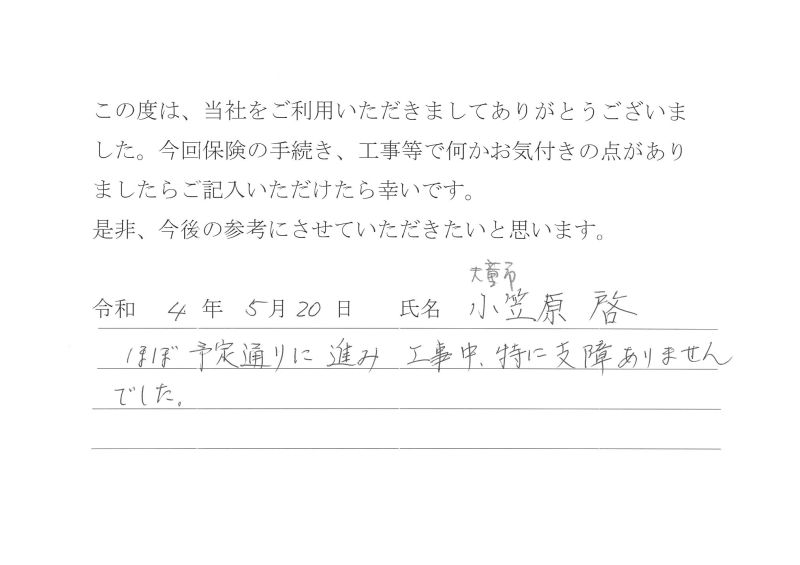 この度は、当社をご利用いただきましてありがとうございま
した。今回保険の手続き、工事等で何かお気付きの点があり
ましたらご記入いただけたら幸いです。
是非、今後の参考にさせていただきたいと思います。
天童市
令和 4 年 5 月 20 日 氏名 小笠原 啓
ほぼ予定通りに進み 工事中、特に支障ありません
でした。